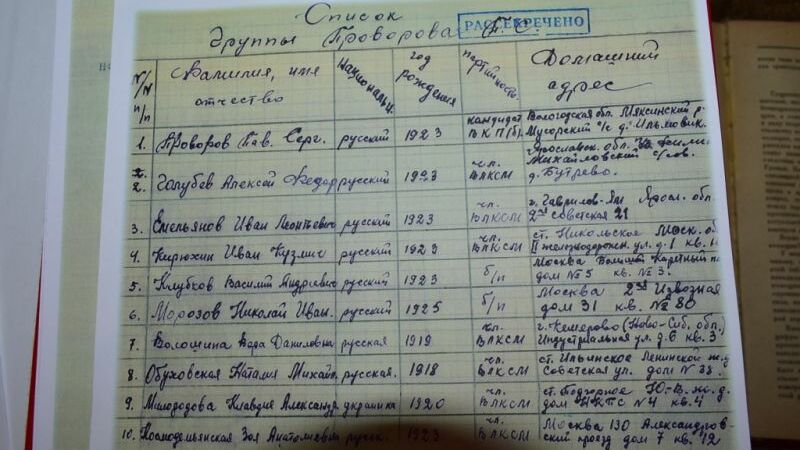 Список
Группы Проворова П. С.
РАССЕКРЕЧЕНО
N/N п/п
Фамилия, имя отчество
Национальн.
год рождения
партийность
Домашний адрес
1. Проворов Пав. Серг. русский 1923 кандидат ВКП(б) Вологодская обл. Мяксинский р-
Мусорский с/с д. Ильмовик.
2. Голубев Алексей Федор русский 1923 чл. ВЛКСМ Ярославск. обл.
Михайловский с/сов.
д. Бутрево.
3. Емельянов Иван Леонтьевич русский 1923 чл. ВЛКСМ г. Гаврилов-Ям Яросл. обл.
2ая Советская 21
4. Кирюхин Иван Кузмич русский 1923 чл. ВЛКСМ ст. Никольское Моск. о
II железнодорожн. ул. д. 1 кв.
5. Клубков Василий Андреевич русский 1923 б/п Москва Большой Каретный п
дом № 5 кв. № 3.
6. Морозов Николай Иван. русский 1925 б/п Москва 2ая Извозная
дом 31 кв. № 80
7. Волошина Вера Даниловна русская 1919 чл. ВЛКСМ г. Кемерово (Ново-Сиб. обл.)
Индустриальная ул. д. 6 кв. 3
8. Обуховская Наталия Михайл. русская. 1918 чл. ВЛКСМ ст. Ильинское Ленинской ж.д
Советская ул. дом № 38.
9. Милорадова Клавдия Александр. украинка 1920 чл. ВЛКСМ ст. Подгорное Ю-В. ж. д.
дом НКПС № 4 кв. 4
10. Космодемьянская Зоя Анатолиевна русск. 1923 чл. ВЛКСМ Москва 130 Александров-
ский проезд дом 7 кв. 12